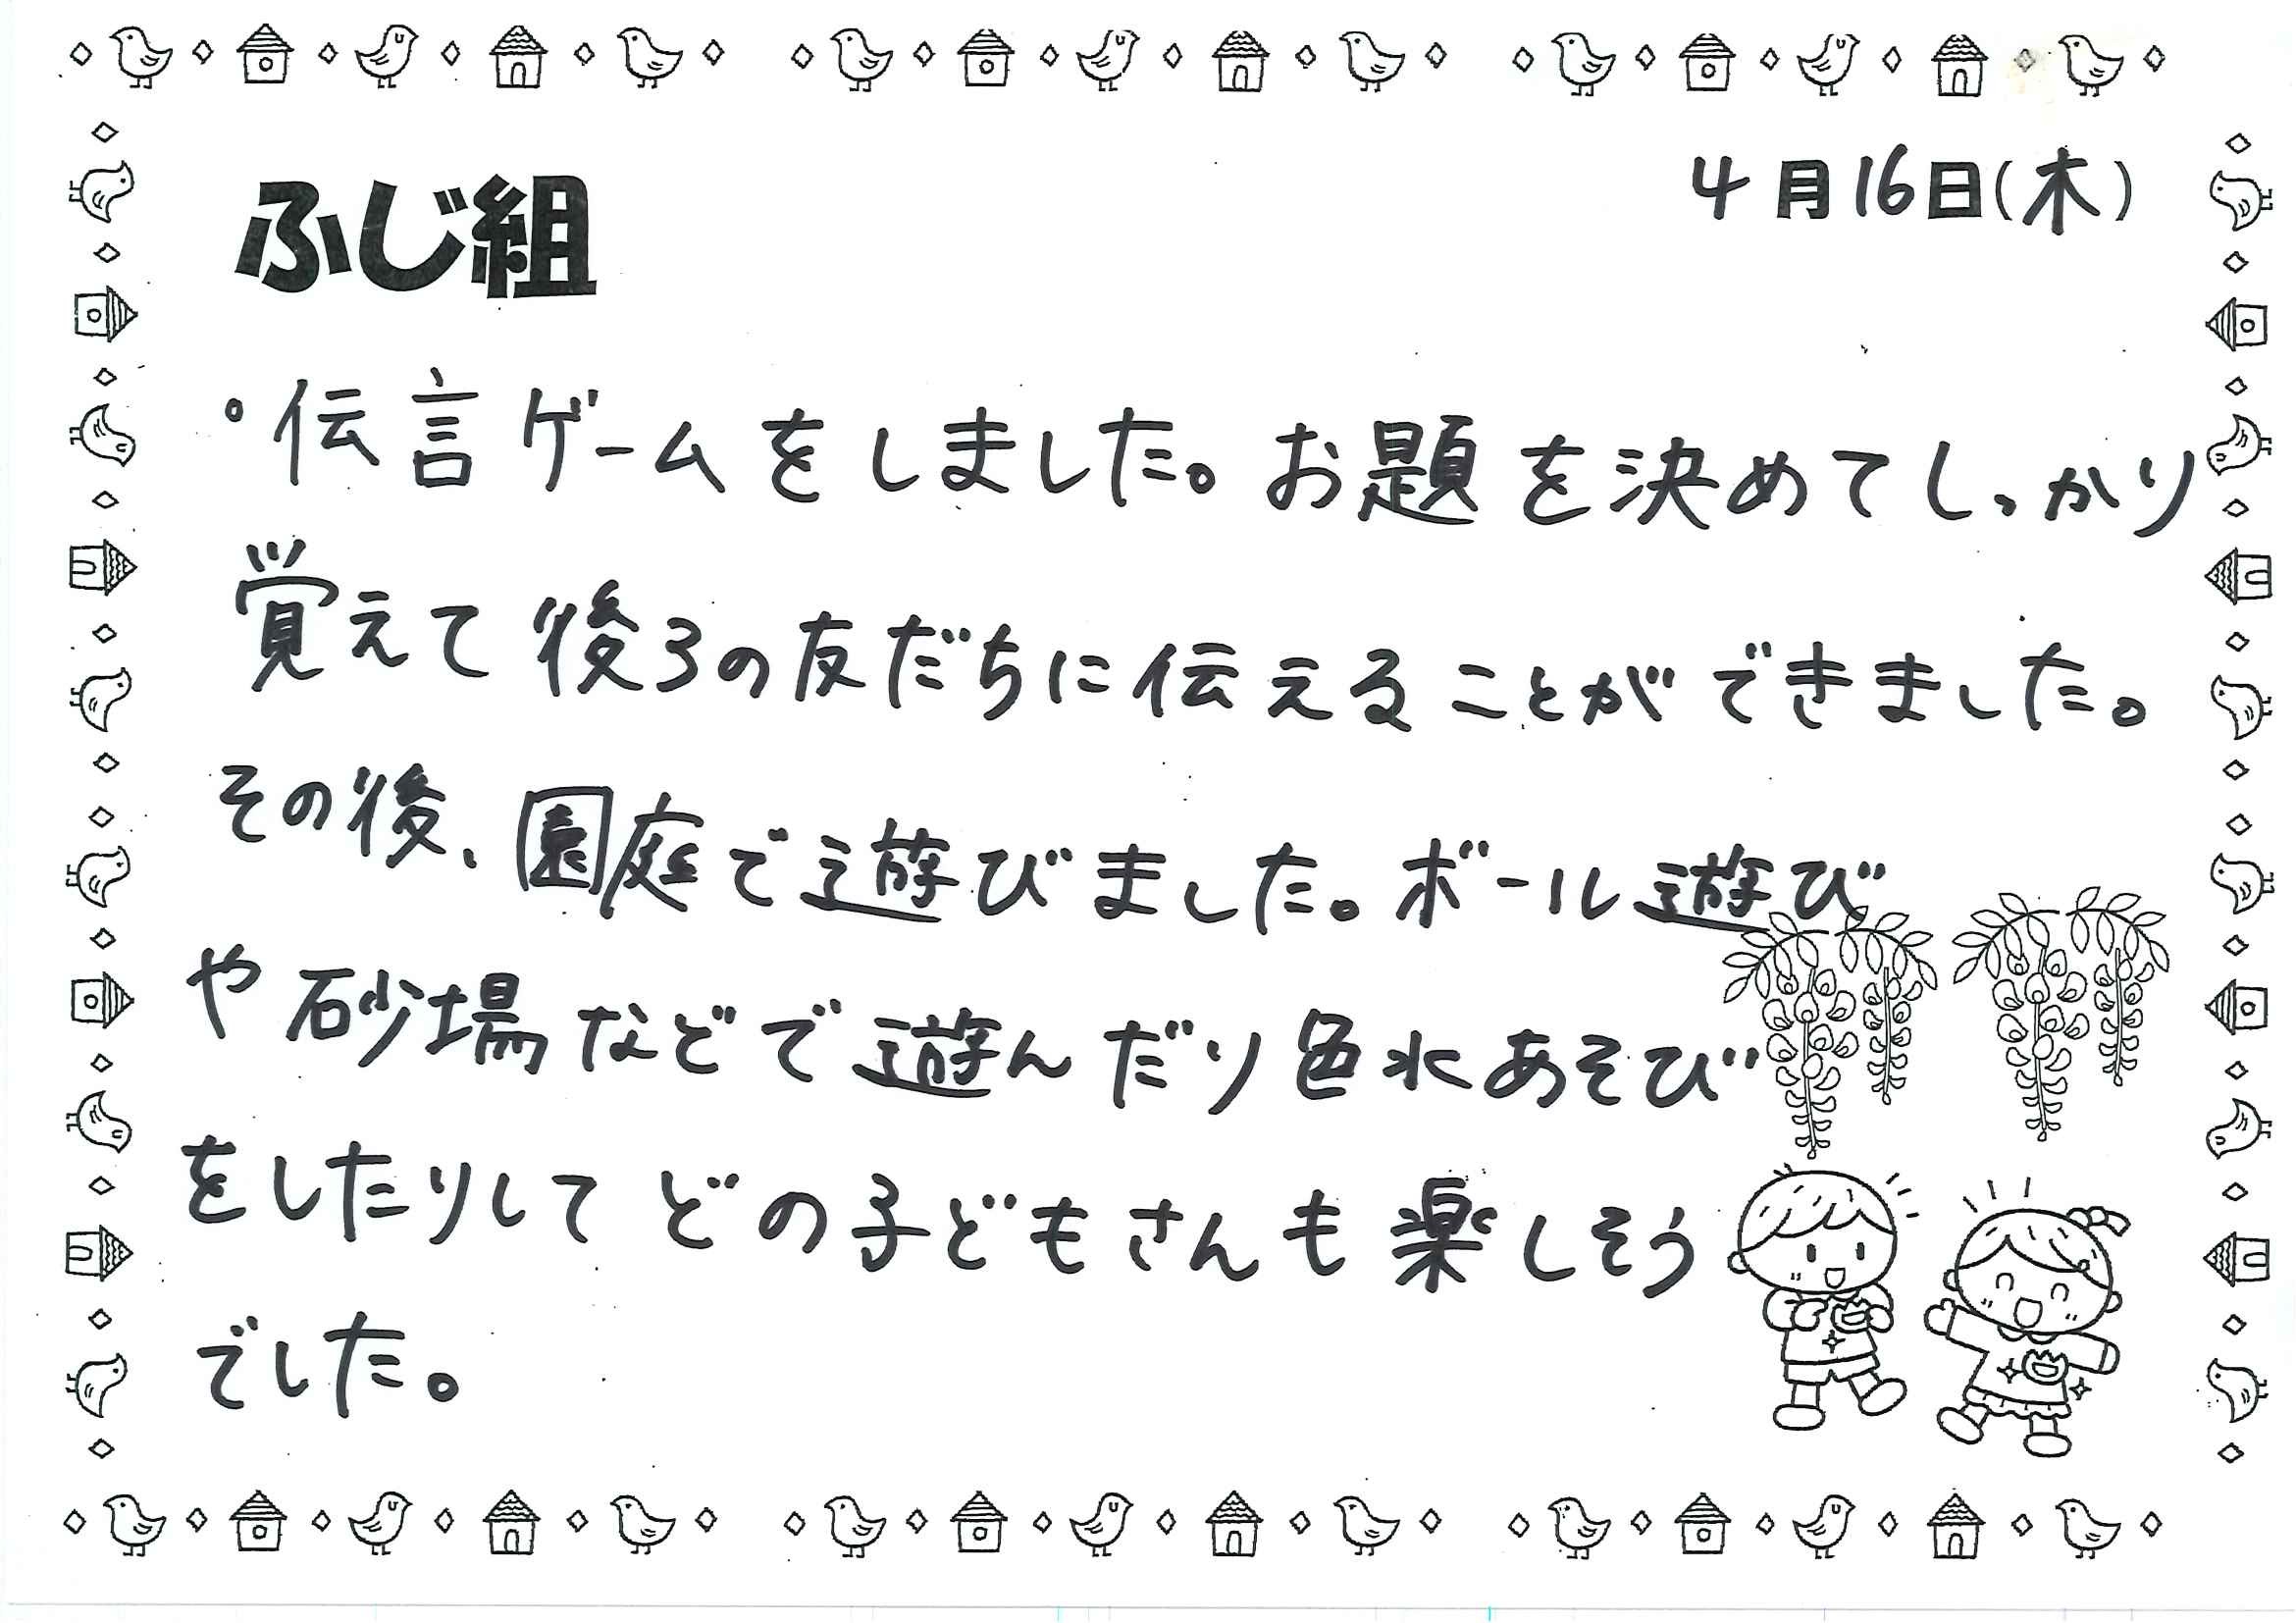 4月16日(木)
ふじ組
。伝言ゲームをしました。お題を決めてしっかり
覚えて後ろの友だちに伝えることができました。
その後、園庭で遊びました。ボール遊び
や砂場などで遊んだり色水あそび
をしたりしてどの子どもさんも楽しそう
でした。